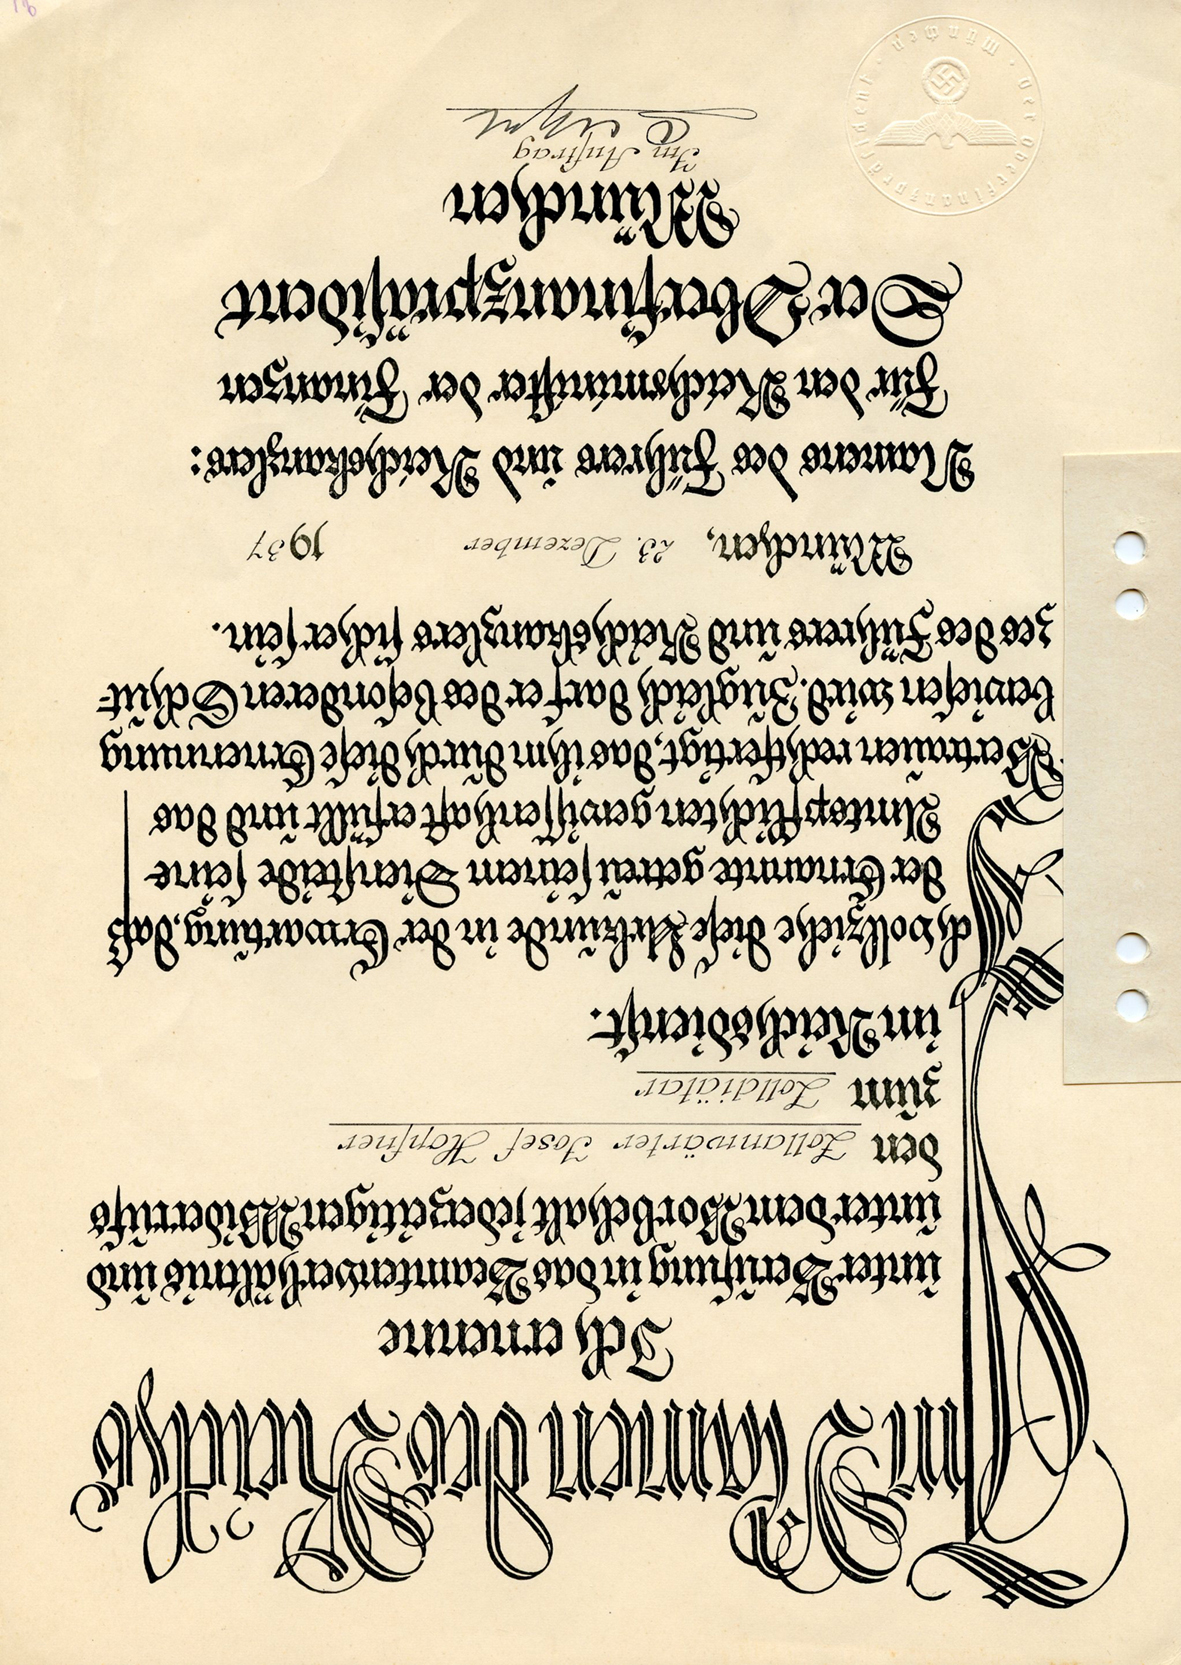 Im Namen des Reichs
Ich ernenne
unter Berufung in das Beamtenverhältnis und
unter dem Vorbehalt jederzeitigen Widerrufs
den Zollanwärter Josef Hopfner
zum Zolldiätar
im Reichsdienst.
Ich vollziehe diese Urkunde in der Erwartung, daß
der Ernannte getreu seinem Diensteide seine
Amtspflichten gewissenhaft erfüllt und das
Vertrauen rechtfertigt, das ihm durch diese Ernennung
bewiesen wird. Zugleich darf er des besonderen Schut-
zes des Führers und Reichskanzlers sicher sein.
München, 23. Dezember 1937
Namens des Führers und Reichskanzlers:
Für den Reichsminister der Finanzen
Der Oberfinanzpräsident
München
Im Auftrag
Der Oberfinanzpräsident · München ·